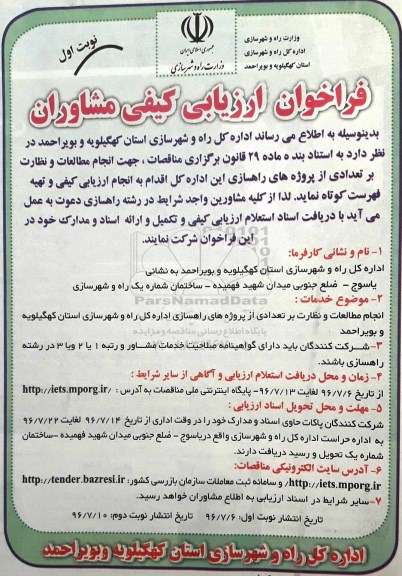 وزارت راه و شهرسازی
اداره کل راه و شهرسازی
استان کهگیلویه و بویراحمد
جمهوری اسلامی ایران
وزارت راه و شهرسازی
نوبت اول
فراخوان ارزیابی کیفی مشاوران
بدینوسیله به اطلاع می رساند اداره کل راه و شهرسازی استان کهگیلویه و بویراحمد در
نظر دارد به استناد بند ه ماده ۲۹ قانون برگزاری مناقصات ، جهت انجام مطالعات و نظارت
بر تعدادی از پروژه های راهسازی این اداره کل اقدام به انجام ارزیابی کیفی و تهیه
فهرست کوتاه نماید. لذا از کلیه مشاورین واجد شرایط در رشته راهسازی دعوت به عمل
می آید با دریافت اسناد استعلام ارزیابی کیفی و تکمیل و ارائه اسناد و مدارک خود در
این فراخوان شرکت نمایند.
۱- نام و نشانی کارفرما:
اداره کل راه و شهرسازی استان کهگیلویه و بویراحمد به نشانی
یاسوج - ضلع جنوبی میدان شهید فهمیده - ساختمان شماره یک راه و شهرسازی
۲- موضوع خدمات :
انجام مطالعات و نظارت بر تعدادی از پروژه های راهسازی اداره کل راه و شهرسازی استان کهگیلویه
و بویراحمد
۳- شرکت کنندگان باید دارای گواهینامه صلاحیت خدمات مشاور و رتبه ۱ یا ۲ و یا ۳ در رشته
راهسازی باشند.
۴- زمان و محل دریافت استعلام ارزیابی و آگاهی از سایر شرایط :
از تاریخ ۹۶/۷/۶ لغایت ۹۶/۷/۱۳- پایگاه اینترنتی ملی مناقصات به آدرس : http://iets.mporg.ir/
۵- مهلت و محل تحویل اسناد ارزیابی :
شرکت کنندگان پاکات حاوی اسناد و مدارک خود را در وقت اداری از تاریخ ۹۶/۷/۱۴ لغایت ۹۶/۷/۲۲
به اداره حراست اداره کل راه و شهرسازی واقع دریاسوج - ضلع جنوبی میدان شهید فهمیده -ساختمان
شماره یک تحویل و رسید دریافت دارند.
۶- آدرس سایت الکترونیکی مناقصات:
http://iets.mporg.ir/ و سامانه ثبت معاملات سازمان بازرسی کشور: http://tender.bazresi.ir
۷- سایر شرایط در اسناد ارزیابی به اطلاع مشاوران خواهد رسید.
تاریخ انتشار نوبت اول: ۹۶/۷/۶ تاریخ انتشار نوبت دوم: ۹۶/۷/۱۰
اداره کل راه و شهرسازی استان کهگیلویه و بویراحمد
ParsNamadData
پایگاه اطلاع رسانی مناقصه و مزایده